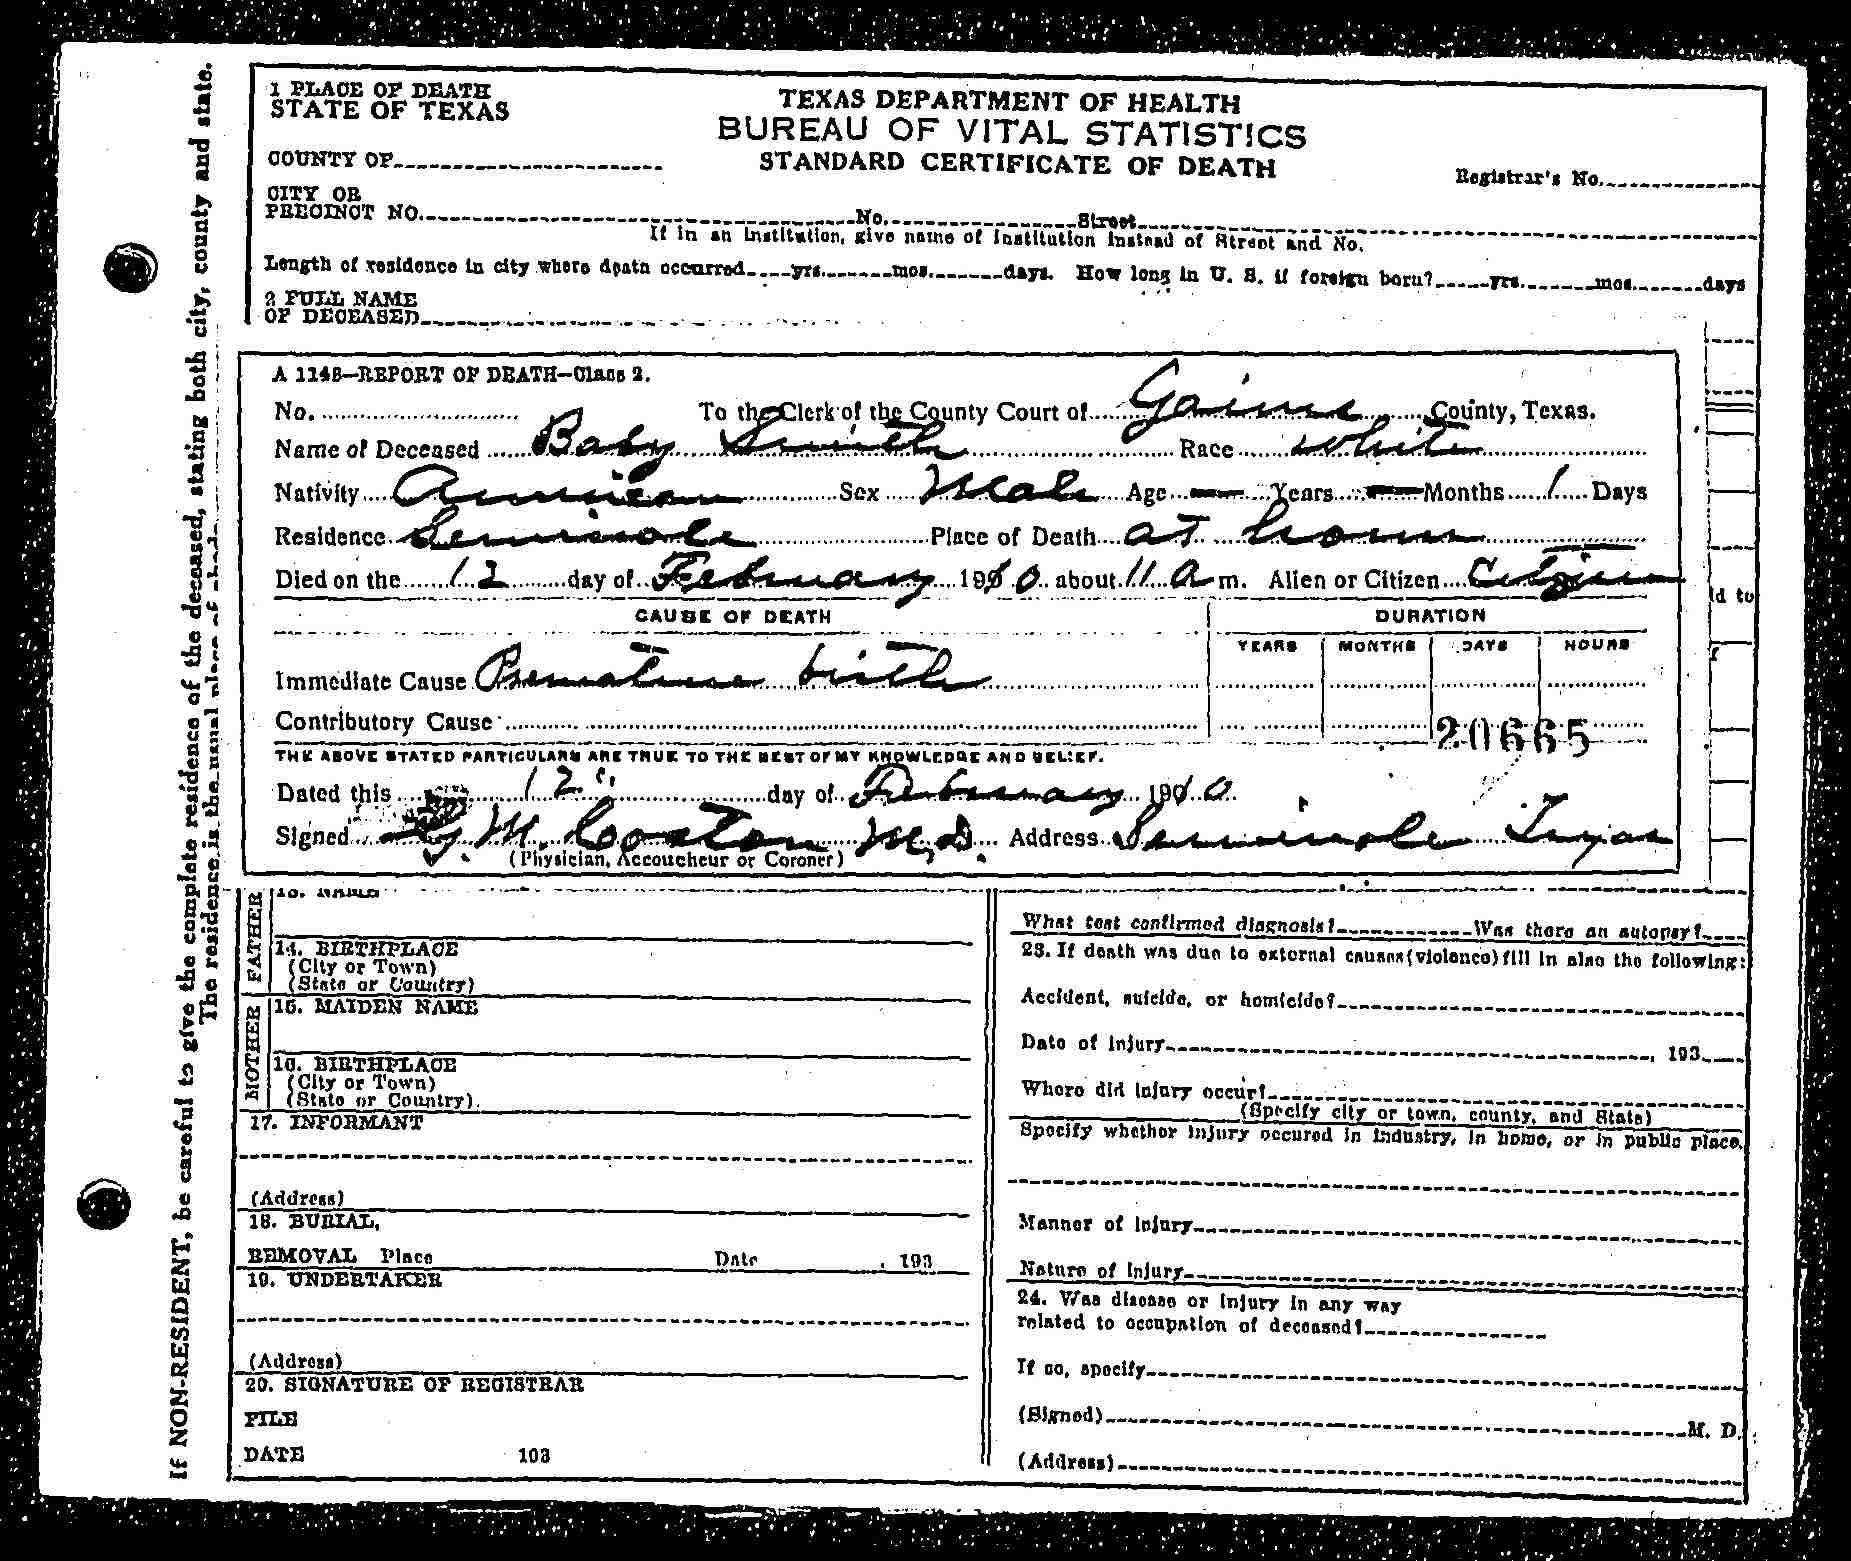 1 PLACE OF DEATH
STATE OF TEXAS
TEXAS DEPARTMENT OF HEALTH
BUREAU OF VITAL STATISTICS
STANDARD CERTIFICATE OF DEATH
COUNTY OF
Registrar's No.
CITY OR
PRECINCT NO. No. Street
If in an institution, give name of institution instead of Street and No.
Length of residence in city where death occurred yrs. mos. days. How long in U. S. if foreign born? yrs. mos. days
2 FULL NAME
OF DECEASED
A 1148—REPORT OF DEATH—Class 2.
No. To the Clerk of the County Court of Gaines County, Texas.
Name of Deceased Baby Smith Race White
Nativity American Sex Male Age — Years — Months 1 Days
Residence Seminole Place of Death at home
Died on the 12 day of February 1910 about 11 a m. Alien or Citizen Citizen
CAUSE OF DEATH DURATION
YEARS MONTHS DAYS HOURS
Immediate Cause Premature birth
Contributory Cause
20665
THE ABOVE STATED PARTICULARS ARE TRUE TO THE BEST OF MY KNOWLEDGE AND BELIEF.
Dated this 12" day of February 1910
Signed G. M. Coston M.D. Address Seminole Texas
(Physician, Accoucheur or Coroner)
13. NAME
FATHER
14. BIRTHPLACE
(City or Town)
(State or Country)
MOTHER
15. MAIDEN NAME
16. BIRTHPLACE
(City or Town)
(State or Country)
17. INFORMANT
(Address)
18. BURIAL,
REMOVAL Place Date , 193
19. UNDERTAKER
(Address)
20. SIGNATURE OF REGISTRAR
FILE
DATE 193
What test confirmed diagnosis? Was there an autopsy?
23. If death was due to external causes (violence) fill in also the following:
Accident, suicide, or homicide?
Date of injury , 193
Where did injury occur?
(Specify city or town, county, and State)
Specify whether injury occured in industry, in home, or in public place.
Manner of injury
Nature of injury
24. Was disease or injury in any way
related to occupation of deceased?
If so, specify
(Signed) M. D.
(Address)
If NON-RESIDENT, be careful to give the complete residence of the deceased, stating both city, county and state.
The residence is the usual place of